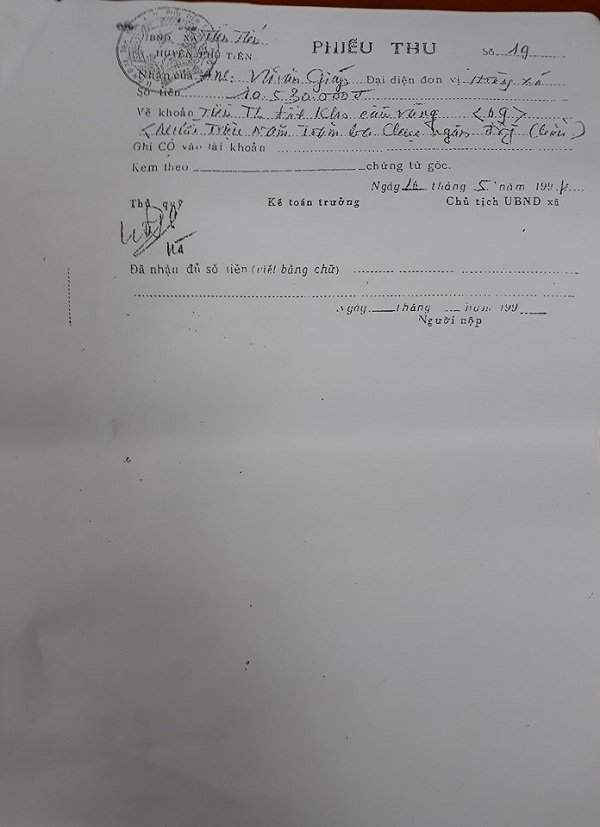 UBND XÃ Tiên Tiến PHIẾU THU Số 19
HUYỆN PHÙ TIÊN
Nhận của Anh: Vũ Văn Giáp Đại diện đơn vị
Số tiền 10.530.000đ
Về khoản Tiền
Mười Triệu Năm Trăm ba Chục ngàn đồng
Ghi CÓ vào tài khoản
Kèm theo chứng từ gốc.
Ngày 16 tháng 5 năm 199
Thủ quỹ Kế toán trưởng Chủ tịch UBND xã
Hà
Đã nhận đủ số tiền (viết bằng chữ)
Ngày tháng năm 199
Người nộp